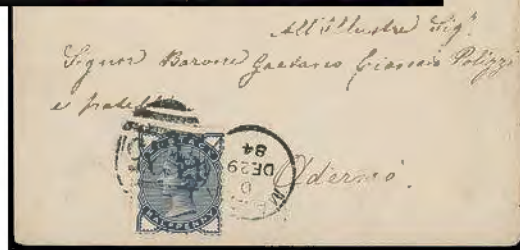 All'Illustre Sig.
Signor Barone Gaetano Ciancio Polizzi
e fratelli
Adernò.
POSTAGE
HALFPENNY
DE 29
84